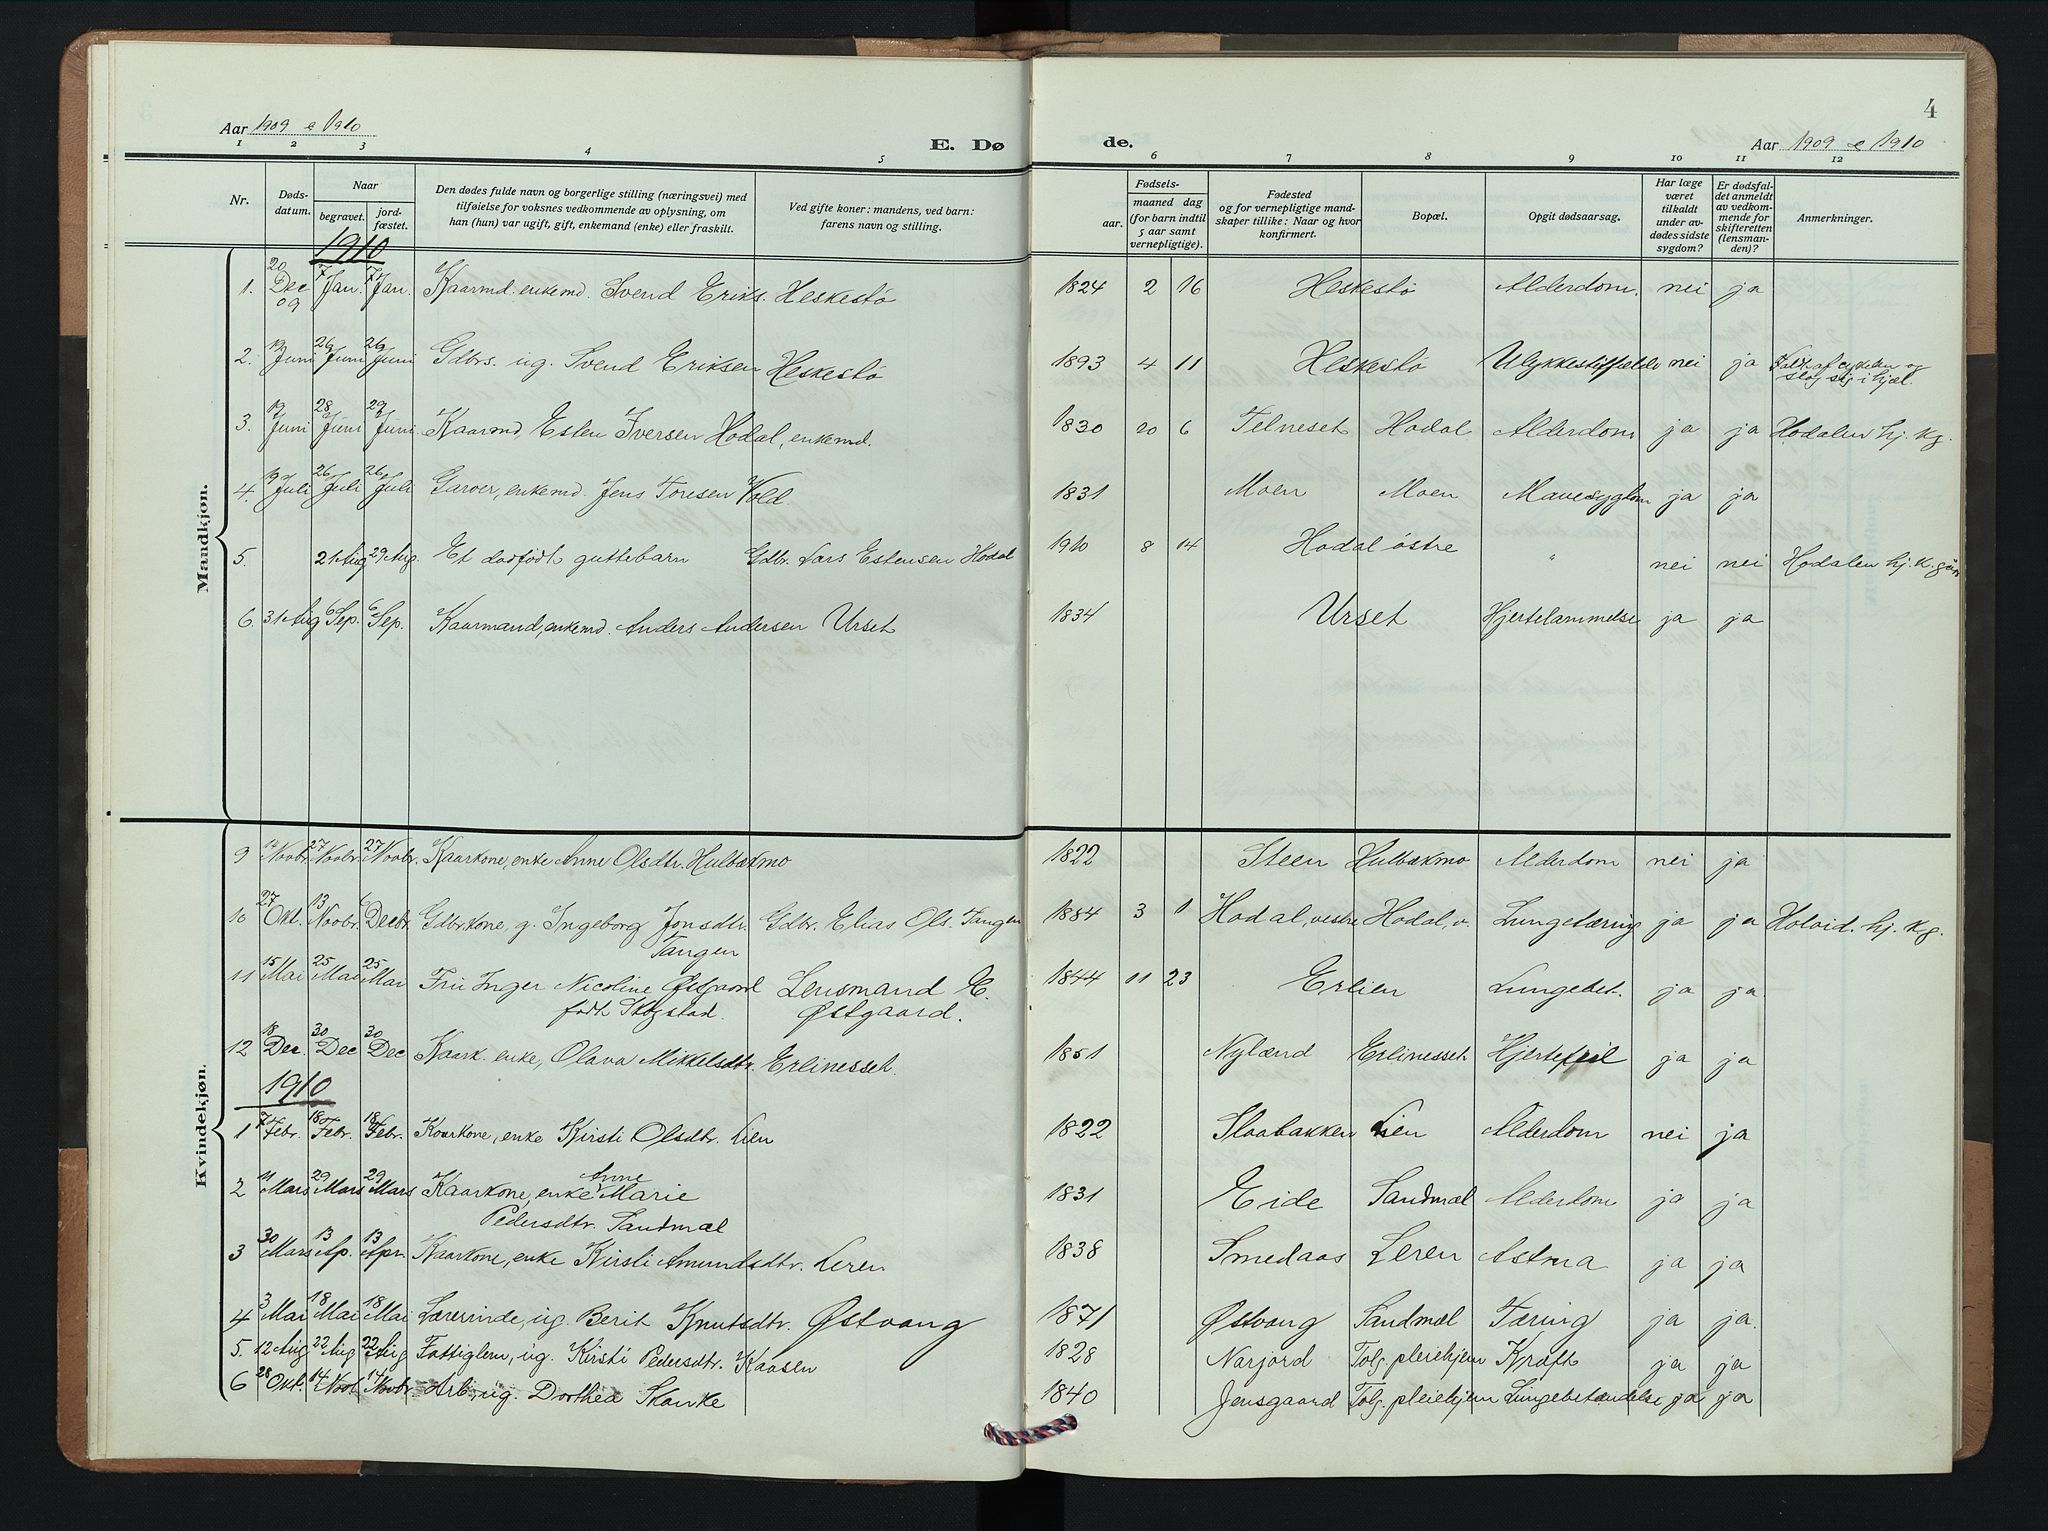 4
Aar 1909 e 1910
E. Dø
de.
Aar 1909 e 1910
1 2 3 4 5 6 7 8 9 10 11 12
Nr.
Døds-
datum.
Naar
begravet.
jord-
fæstet.
Den dødes fulde navn og borgerlige stilling (næringsvei) med
tilføielse for voksnes vedkommende av oplysning, om
han (hun) var ugift, gift, enkemand (enke) eller fraskilt.
Ved gifte koner: mandens, ved barn:
farens navn og stilling.
Fødsels-
aar.
maaned dag
(for barn indtil
5 aar samt
vernepligtige).
Fødested
og for vernepligtige mand-
skaper tillike: Naar og hvor
konfirmert.
Bopæl.
Opgit dødsaarsag.
Har læge
været
tilkaldt
under av-
dødes sidste
sygdom?
Er dødsfal-
det anmeldt
av vedkom-
mende for
skifteretten
(lensman-
den)?
Anmerkninger.
Mandkjøn.
1910
1. 20 Dec 09 7 Jan. 7 Jan. Kaarmd. enkemd. Svend Eriks. Heskestø 1824 2 16 Heskestø Alderdom. nei ja
2. 19 Juni 26 Juni 26 Juni Gdbrs. ug. Svend Eriksen Heskestø 1893 4 11 Heskestø Ulykkestilfælde nei ja Faldt af cykelen og
slog sig i hjæl.
3. 19 Juni 28 Juni 29 Juni Kaarmd, Esten Iversen Hodal, enkemd. 1830 20 6 Telneset Hodal Alderdom ja ja Hodalen hj. kg.
4. 19 Juli 26 Juli 26 Juli Garver, enkemd. Jens Toresen Vold. 1831 Moen Moen Mavesygdom ja ja
5. 21 Aug 29 Aug. Et dødfødt guttebarn Gdbr. Lars Estensen Hodal 1910 8 14 Hodal østre " nei nei Hodalen hj. k.
6. 31 Aug 6 Sep. 6 Sep. Kaarmand, enkemd. Anders Andersen Urset 1834 Urset Hjertelammelse ja ja
Kvindekjøn.
9 Novbr. 27 Novbr. 27 Novbr. Kaarkone, enke Anne Olsdtr. Hulbækmo 1822 Steen Hulbækmo Alderdom nei ja
10 27 Okt. 13 Novbr. 6 Decbr. Gdbr.kone, g. Ingeborg Jonsdtr.
Tangen Gdbr. Elias Ols. Tangen 1884 3 1 Hodal, vestre Hodal, v. Lungetæring ja ja Holøid. hj. kg.
11 15 Mai 25 Mai 25 Mai Fru Inger Nicoline Østgaard
født Skogstad. Lensmand E.
Østgaard. 1844 11 23 Erlien Lungebet. ja ja.
12 18 Dec. 30 Dec 30 Dec Kaark. enke, Olava Mikkelsdtr. Erlinesset. 1851 Nylænd Erlinesset Hjertefeil ja ja
1910
1 7 Febr. 18 Febr. 18 Febr. Kaarkone, enke Kirsti Olsdtr. Lien 1822 Slaabakken Lien Alderdom nei ja
2 11 Mars 29 Mars 29 Mars Kaarkone, enke Anne Marie
Pedersdtr. Sandmæl 1831 Eide Sandmæl Alderdom ja ja
3 30 Mars 13 Ap. 13 Apr. Kaarkone, enke Kirsti Amundsdtr. Leren 1838 Smedaas Leren Astma ja ja
4 3 Mai 18 Mai 18 Mai Lærerinde, ug. Berit Knutsdtr. Østvang 1871 Østvang Sandmæl Tæring ja ja.
5. 12 Aug 22 Aug 22 Aug Fattiglem, ug. Kirsti Pedersdtr. Kaasen 1828 Narjord Tolg. pleiehjem Kræft ja ja
6 28 Okt. 14 Nov. 14 Novbr. Arb., ug. Dorthea Skanke 1840 Jensgaard Tolg. pleiehjem Lungebetændelse ja ja